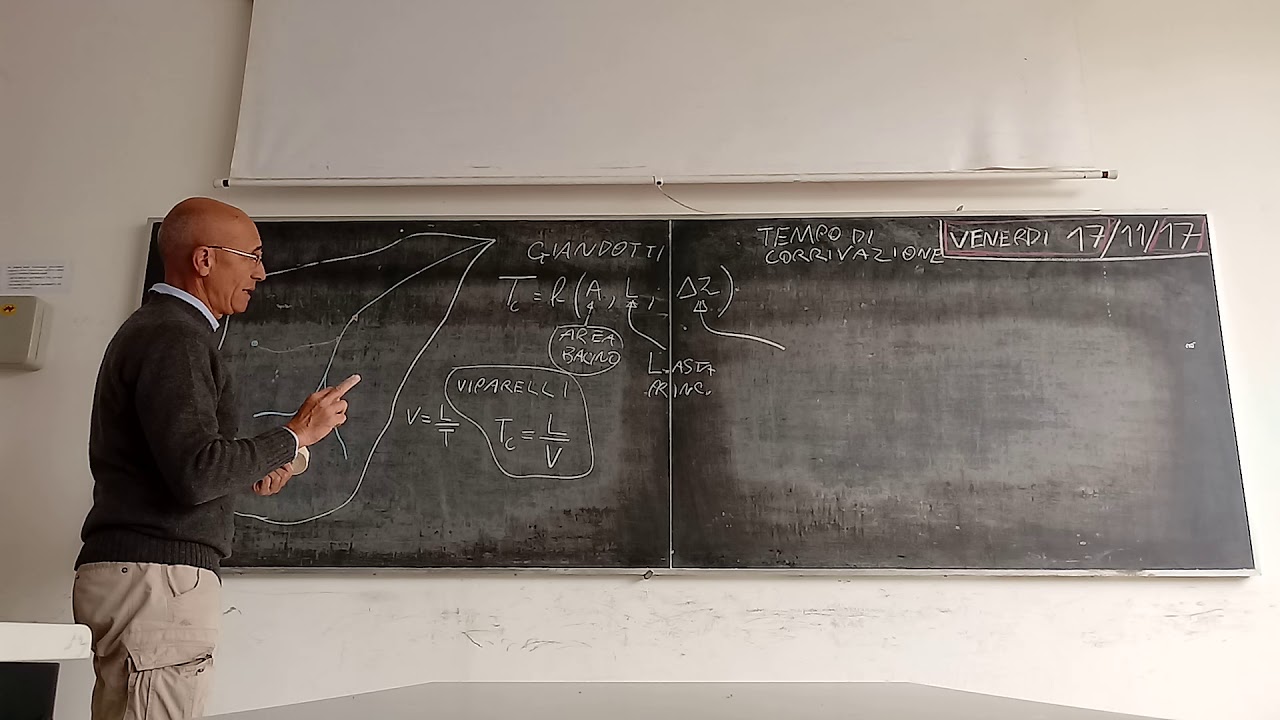 GIANDOTTI
Tc = f (A, L, ΔZ)
AREA
BACINO
L. ASTA
PRINC.
VIPARELLI
V = L/T
Tc = L/V
TEMPO DI
CORRIVAZIONE
VENERDI 17/11/17